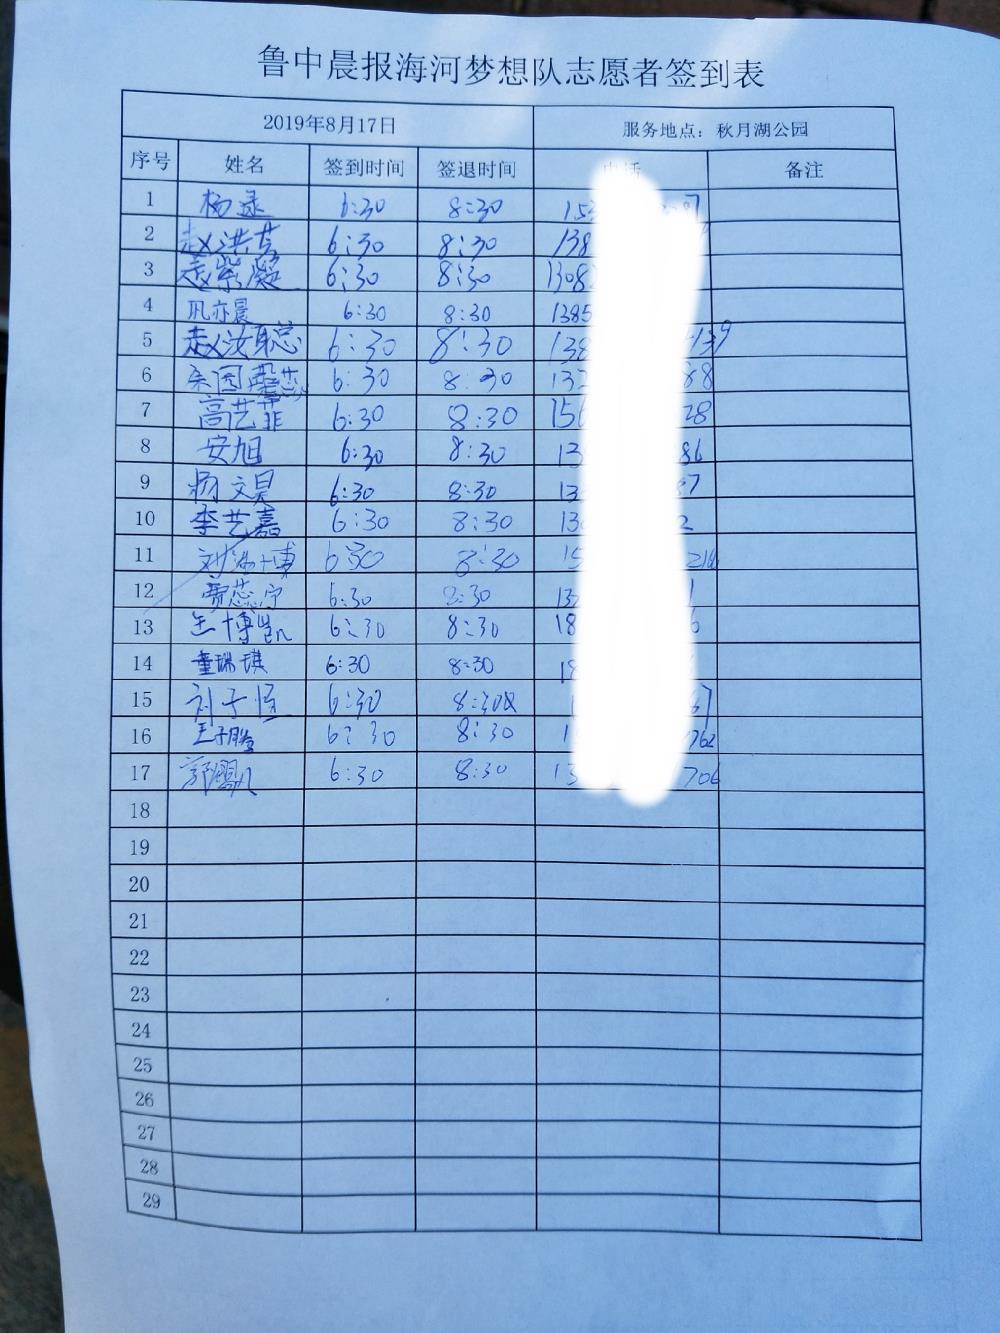 鲁中晨报海河梦想队志愿者签到表
2019年8月17日 服务地点：秋月湖公园
序号 姓名 签到时间 签退时间 电话 备注
1 杨录 6:30 8:30 153
2 赵洪艺 6:30 8:30 138
3 赵紫凝 6:30 8:30 1308
4 巩亦晨 6:30 8:30 1385
5 赵汝聪 6:30 8:30 138 139
6 6:30 8:30 132 88
7 高艺菲 6:30 8:30 156 28
8 安旭 6:30 8:30 13 86
9 杨文昊 6:30 8:30 13 7
10 李艺嘉 6:30 8:30 130 2
11 6:30 8:30 15
12 贾蕊宁 6:30 8:30 132
13 王博凯 6:30 8:30 18
14 董瑞琪 6:30 8:30 18
15 刘子恒 6:30 8:30 7
16 王子腾 6:30 8:30 1 762
17 6:30 8:30 13 706
18
19
20
21
22
23
24
25
26
27
28
29